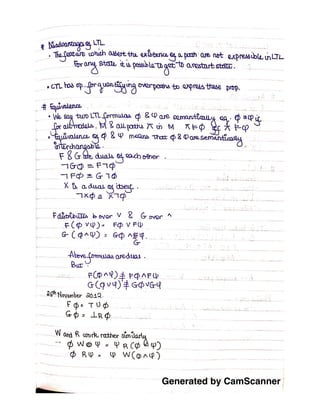 # Disadvantage of LTL
• The feature which assert the existence of a path are not expressible in LTL
for any state it is possible to get to a restart state.
• CTL has op. for quantifying over paths to express these prop.
# Equivalence
• We say two LTL formulas φ & ψ are semantically eq. φ ≡ ψ if
for all models M & all paths π in M π ⊨ φ iff π ⊨ ψ
• Equivalence of φ & ψ means that φ & ψ are semantically
interchangable.
F & G are duals of each other.
¬Gφ ≡ F¬φ
¬Fφ ≡ G¬φ
X is a dual of itself.
¬Xφ ≡ X¬φ
F distributes over ∨ & G over ∧
F(φ∨ψ) = Fφ ∨ Fψ
G(φ∧ψ) = Gφ ∧ Gψ
Above formulas are dual.
But
F(φ∧ψ) ≠ Fφ∧Fψ
G(φ∨ψ) ≠ Gφ∨Gψ
20th November 2012
Fφ = T U φ
Gφ = ⊥ R φ
W and R work rather similarly
φ W ψ = ψ R (φ ∨ ψ)
φ R ψ = ψ W (φ ∧ ψ)
Generated by CamScanner